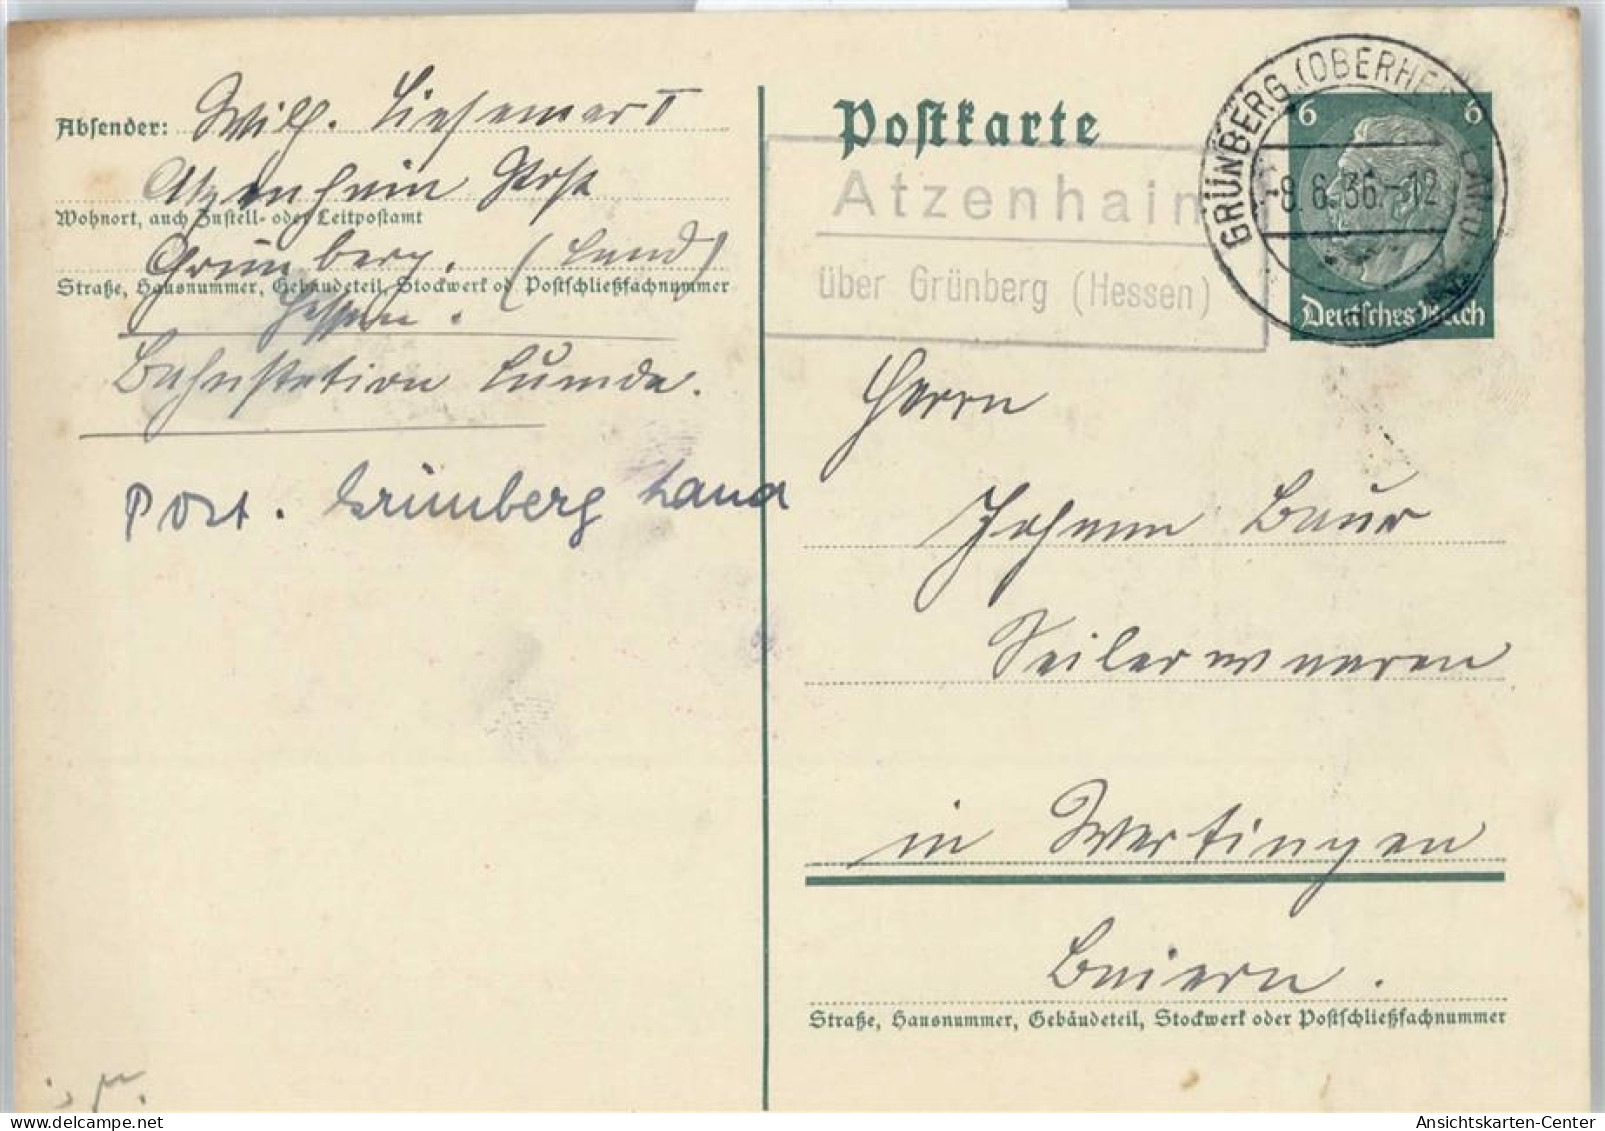 Absender: Wilh. Liesemer II
Atzenhain Post
Wohnort, auch Zustell- oder Leitpostamt
Grünberg. (Land)
Straße, Hausnummer, Gebäudeteil, Stockwerk od. Postschließfachnummer
Hessen.
Bahnstation Lumda.
Post. Grünberg Land
Postkarte
Atzenhain
über Grünberg (Hessen)
GRÜNBERG (OBERHE LAND)
-8.6.36.-12
6 6
Deutsches Reich
Herrn
Johann Baur
Seilerwaaren
in Wertingen
Baiern.
Straße, Hausnummer, Gebäudeteil, Stockwerk oder Postschließfachnummer
delcampe.net
Ansichtskarten-Center